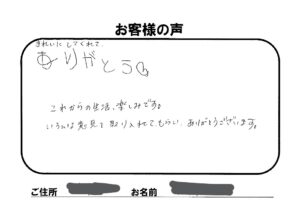 お客様の声
きれいに してくれて
ありがとう。
これからの生活、楽しみです。
いろんな意見を取り入れてもらい ありがとうございます。
ご住所
お名前